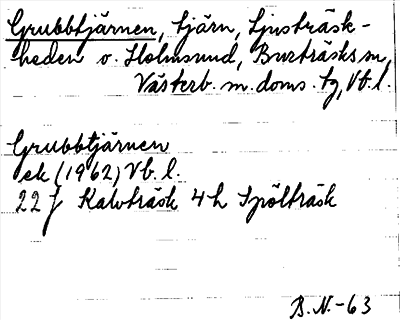 Grubbtjärnen, tjärn, Ljusträsk-
heden o. Holmsund, Burträsks sn,
Västerb. m. doms. tg, Vb. l.
Grubbtjärnen
ek (1962) Vb. l.
22 J Kalvträsk 4 h Spölträsk
B.N.-63